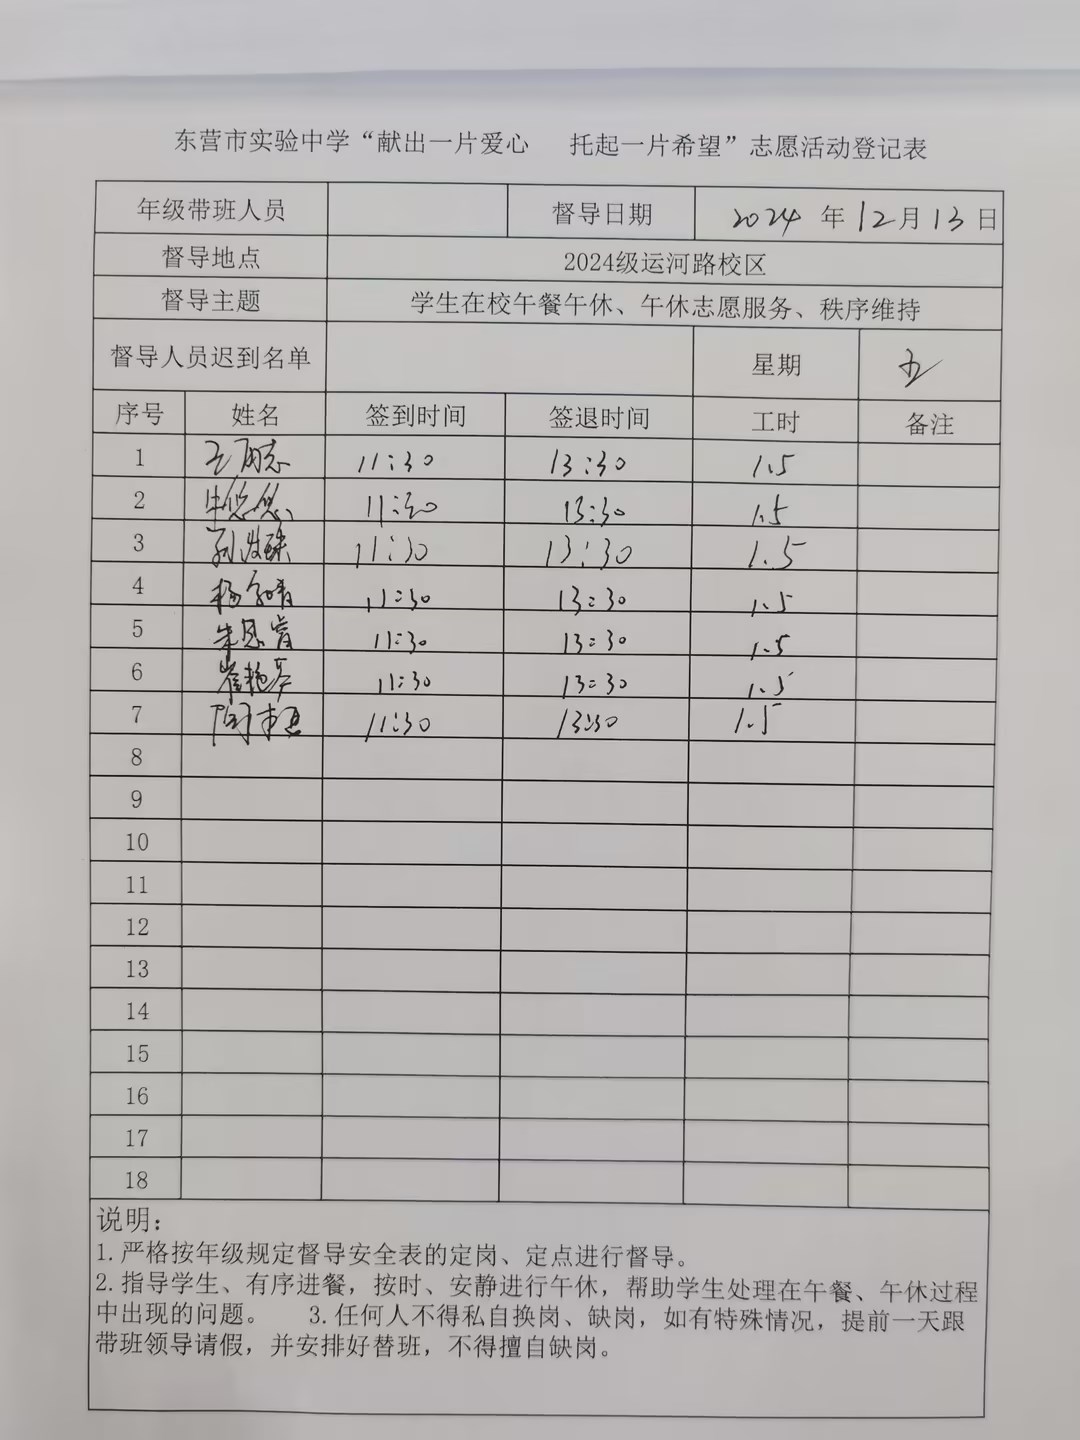 东营市实验中学“献出一片爱心 托起一片希望”志愿活动登记表
年级带班人员 督导日期 2024 年 12 月 13 日
督导地点 2024级运河路校区
督导主题 学生在校午餐午休、午休志愿服务、秩序维持
督导人员迟到名单 星期 五
序号 姓名 签到时间 签退时间 工时 备注
1 11:30 13:30 1.5
2 牛悠悠 11:30 13:30 1.5
3 11:30 13:30 1.5
4 11:30 13:30 1.5
5 11:30 13:30 1.5
6 崔艳芬 11:30 13:30 1.5
7 11:30 13:30 1.5
8
9
10
11
12
13
14
15
16
17
18
说明：
1.严格按年级规定督导安全表的定岗、定点进行督导。
2.指导学生、有序进餐，按时、安静进行午休，帮助学生处理在午餐、午休过程
中出现的问题。 3.任何人不得私自换岗、缺岗，如有特殊情况，提前一天跟
带班领导请假，并安排好替班，不得擅自缺岗。